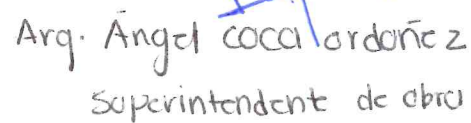 Arq. Ángel coca ordoñez
superintendente de obra